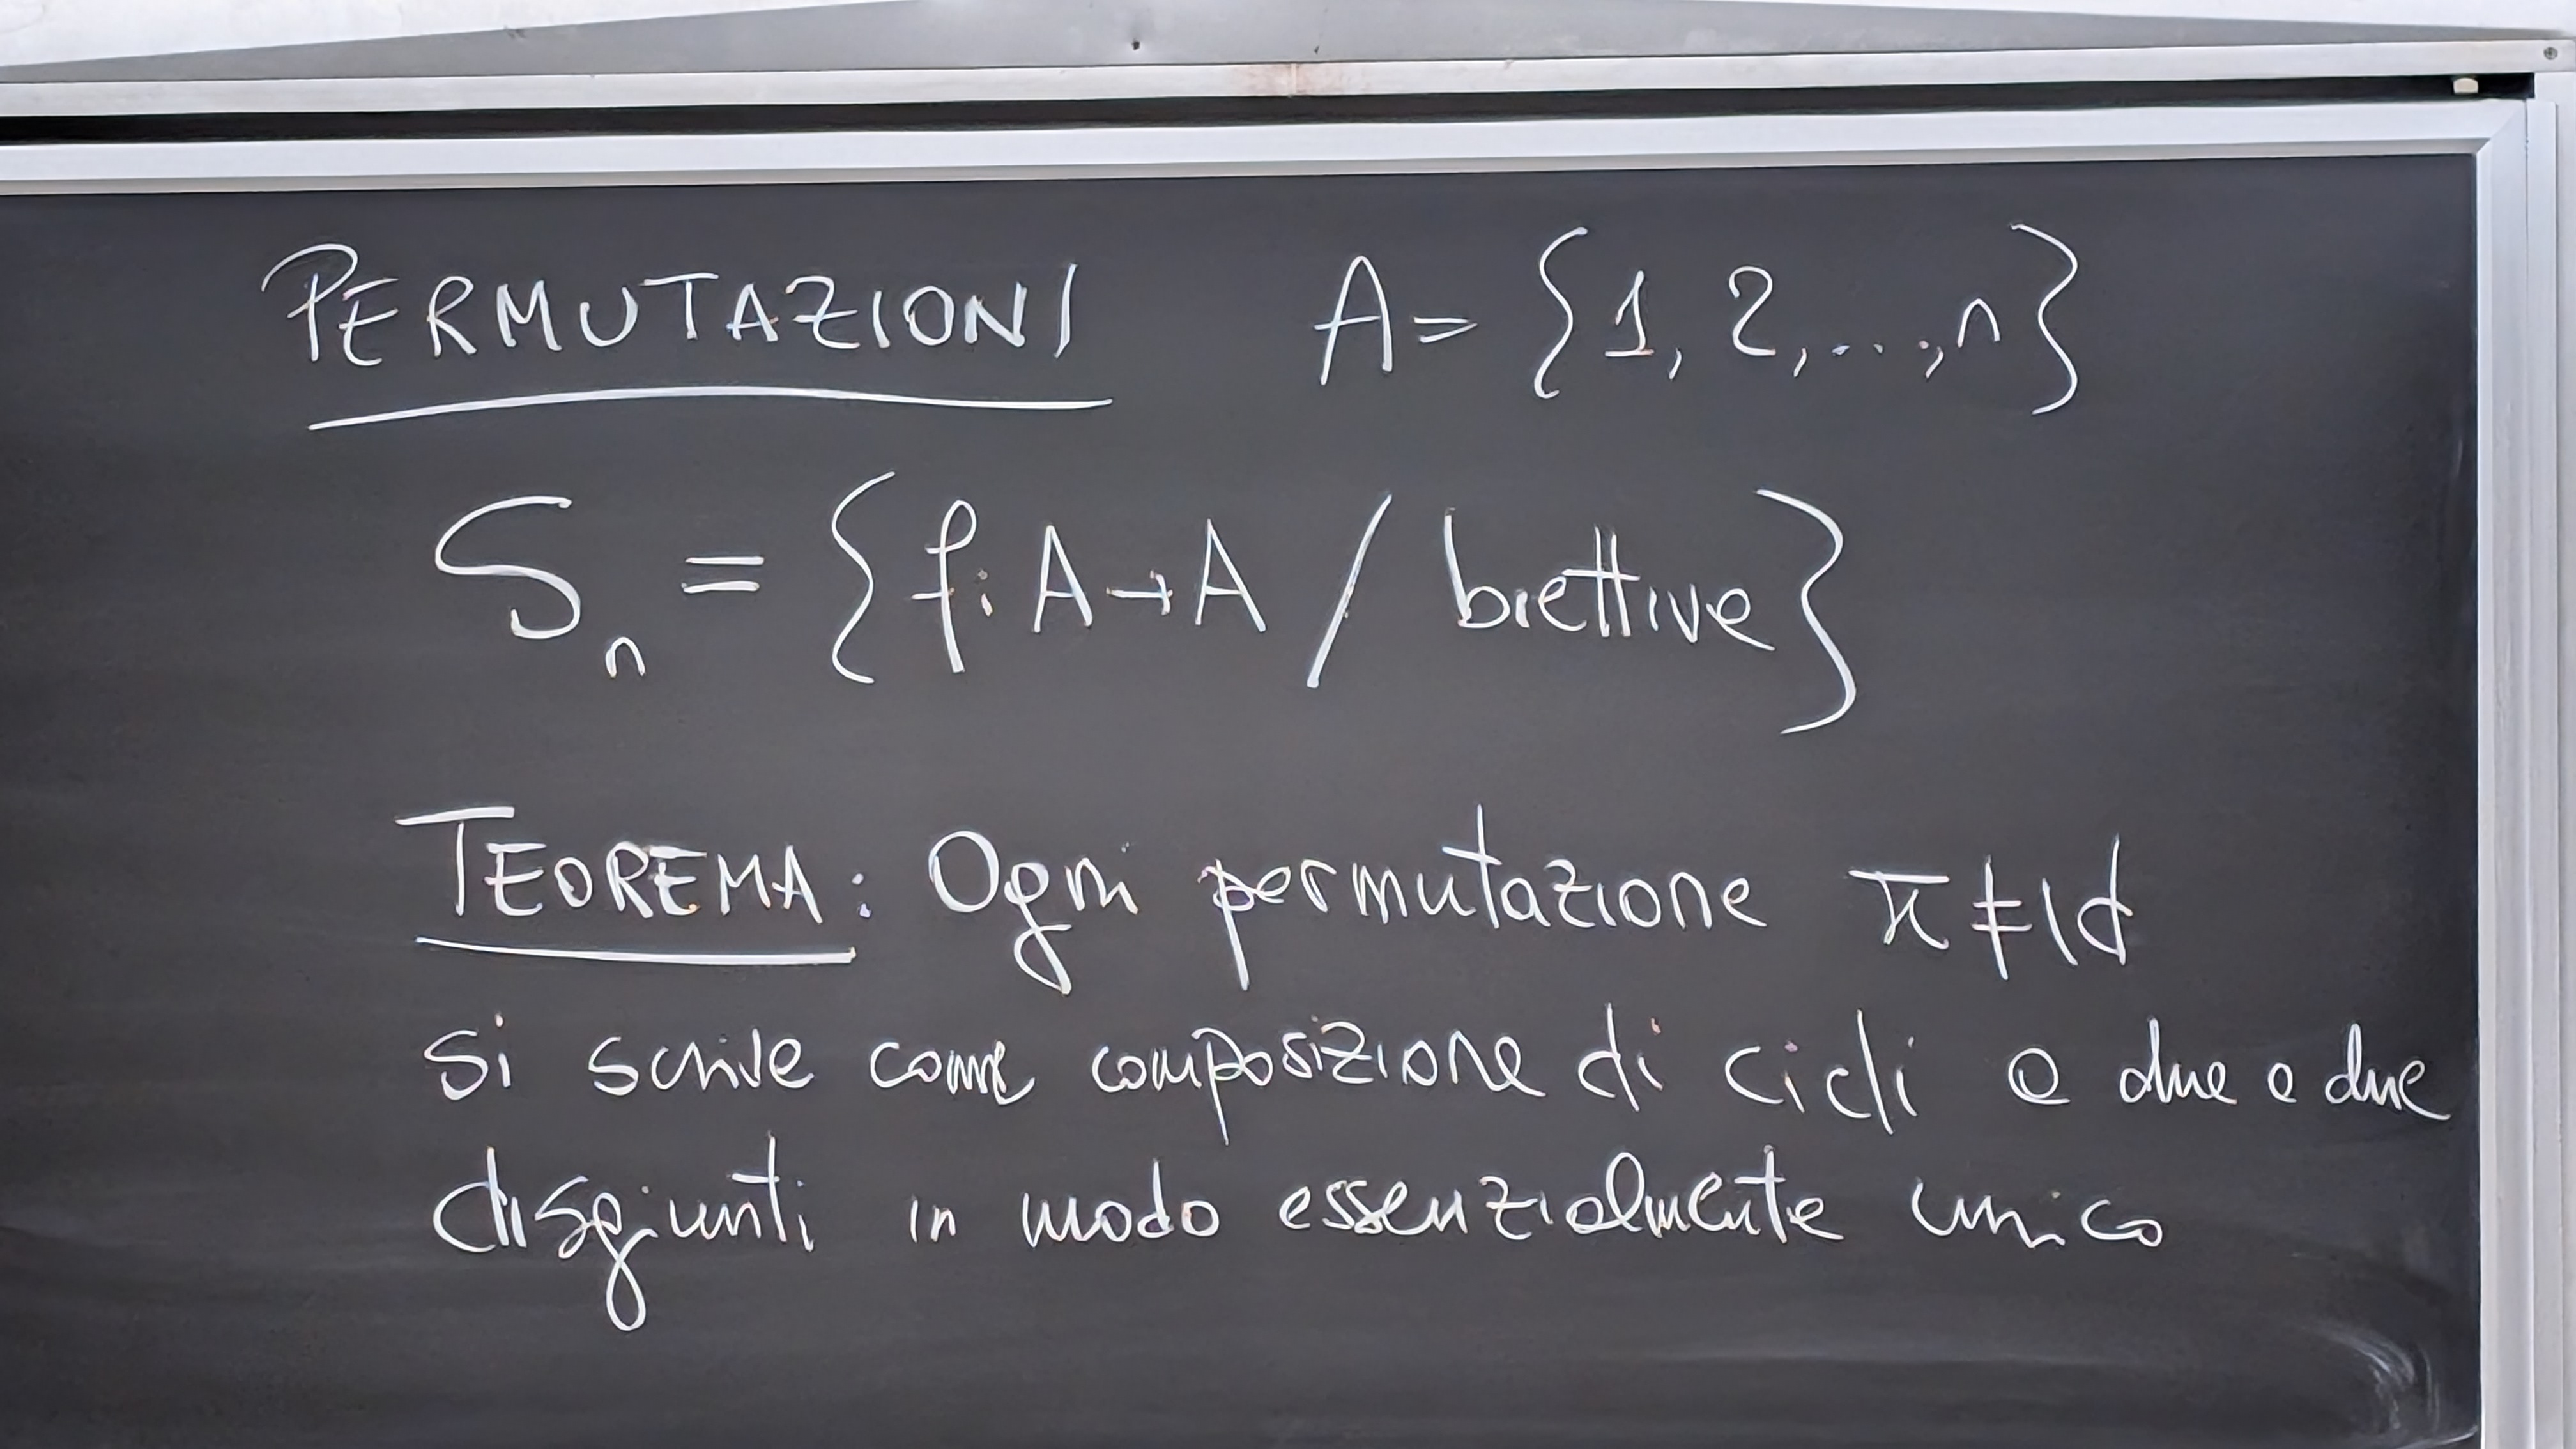 PERMUTAZIONI A= {1, 2, ..., n}
Sₙ = {f: A→A / biettive}
TEOREMA: Ogni permutazione π ≠ Id
si scrive come composizione di cicli a due a due
disgiunti in modo essenzialmente unico